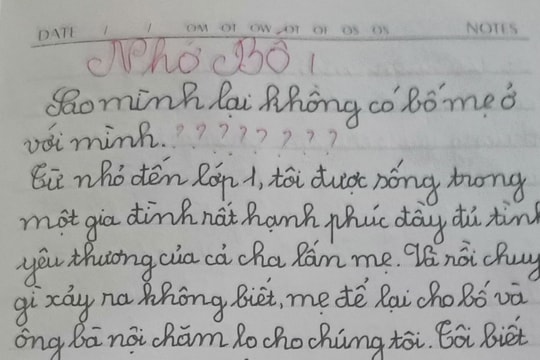 DATE / / NOTES
Nhớ Bố!
Sao mình lại không có bố mẹ ở
với mình. ? ? ? ? ? ? ? ?
Từ nhỏ đến lớp 1, tôi được sống trong
một gia đình rất hạnh phúc đầy đủ tình
yêu thương của cả cha lẫn mẹ. Và rồi chuy
gì xảy ra không biết, mẹ để lại cho bố và
ông bà nội chăm lo cho chúng tôi. Tôi biết